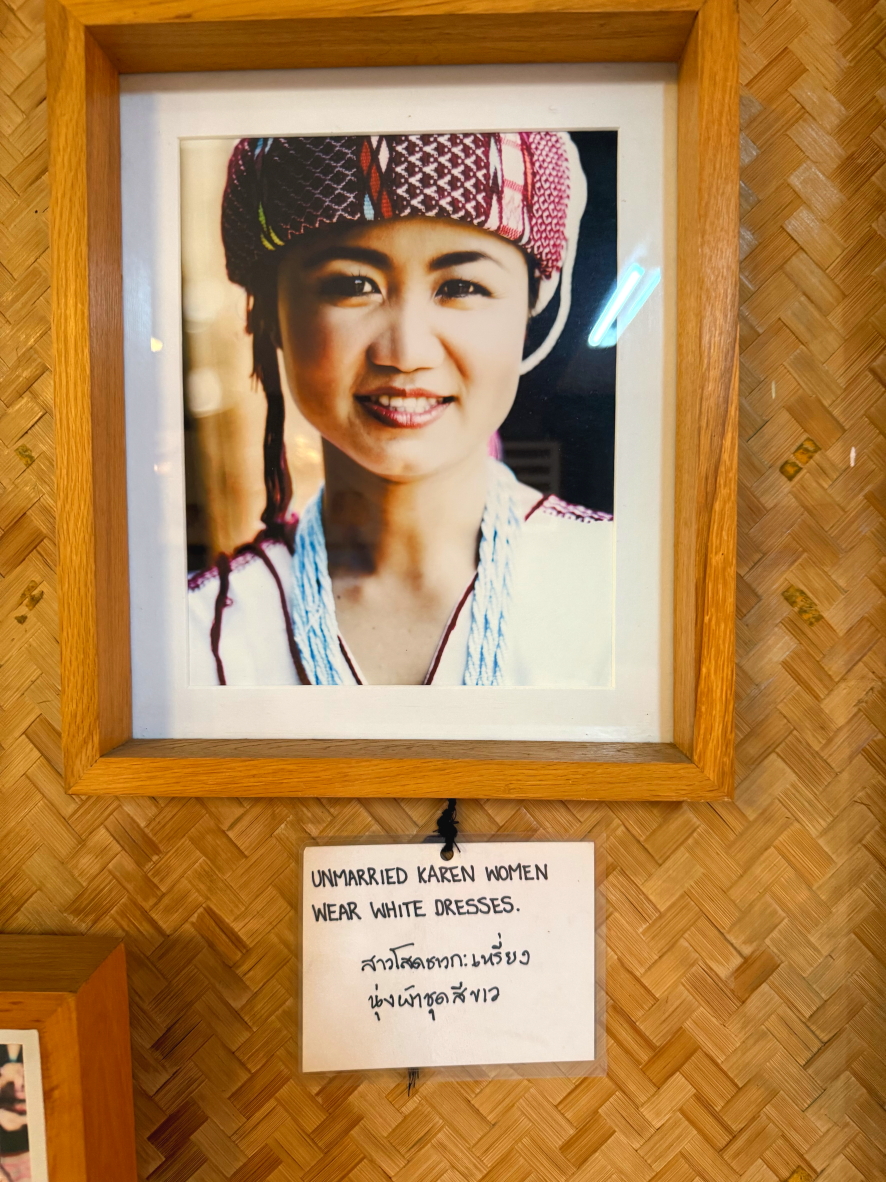 UNMARRIED KAREN WOMEN
WEAR WHITE DRESSES.
สาวโสดชาวกะเหรี่ยง
นุ่งผ้าชุดสีขาว